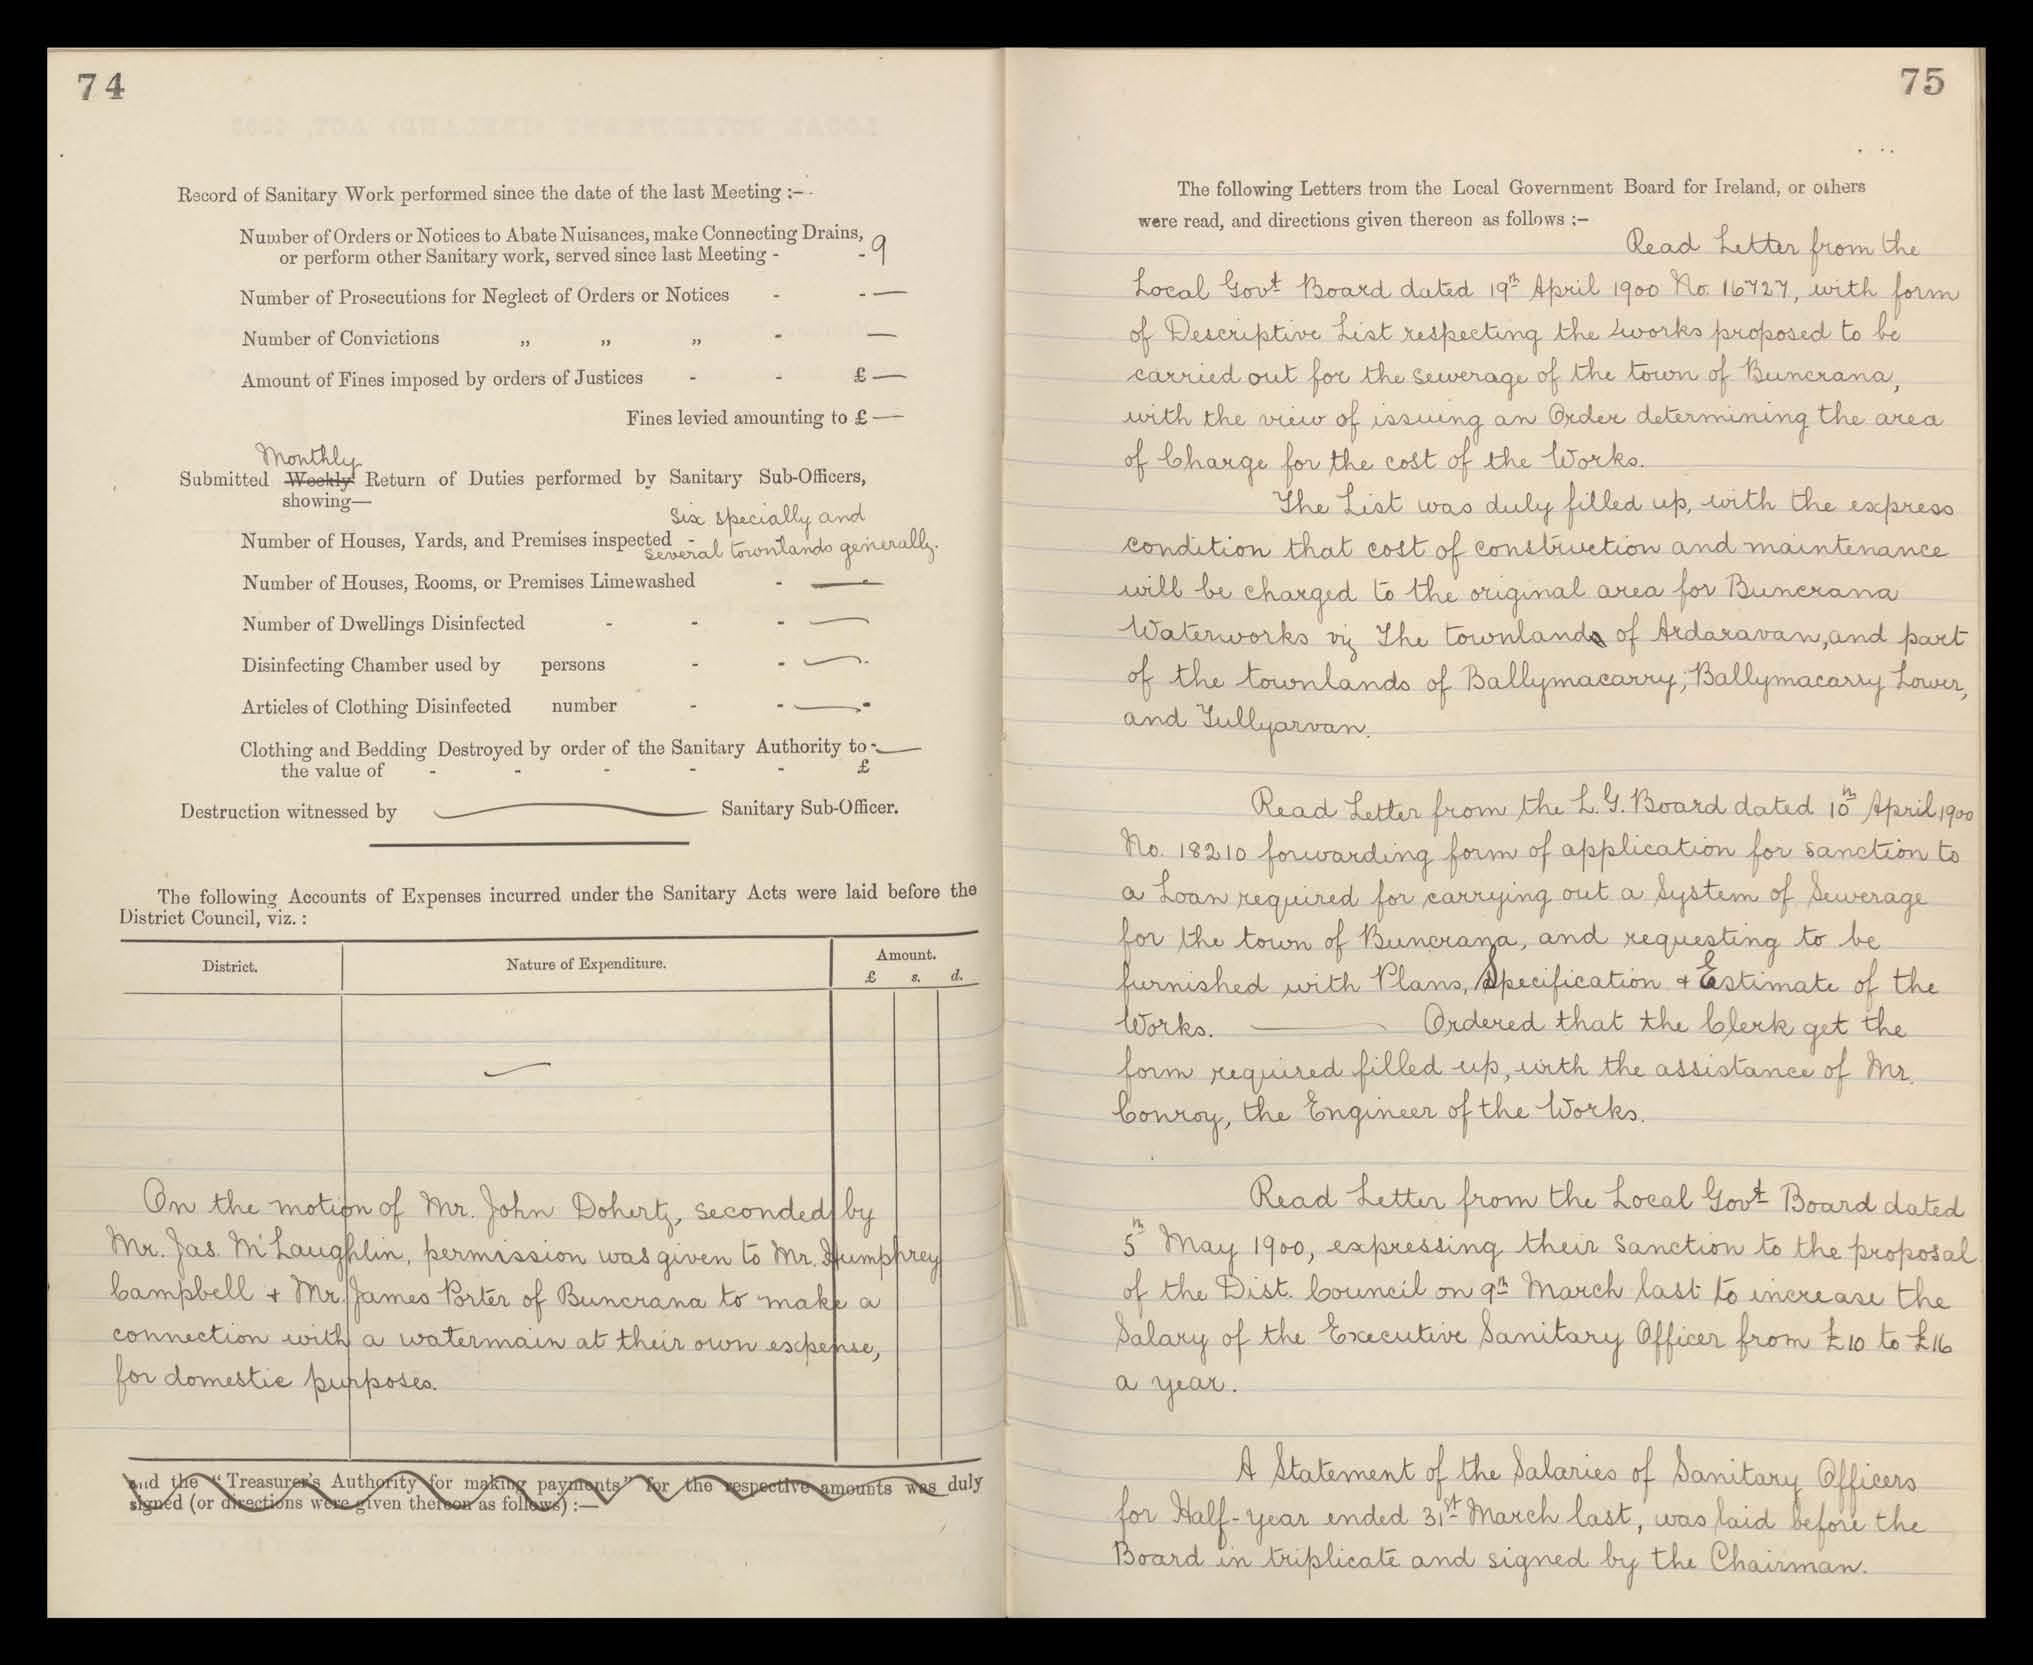 74
Record of Sanitary Work performed since the date of the last Meeting :-
Number of Orders or Notices to Abate Nuisances, make Connecting Drains,
or perform other Sanitary work, served since last Meeting - - 9
Number of Prosecutions for Neglect of Orders or Notices - - —
Number of Convictions „ „ „ - —
Amount of Fines imposed by orders of Justices - - £ —
Fines levied amounting to £ —
Monthly
Submitted Weekly Return of Duties performed by Sanitary Sub-Officers,
showing—
six specially and
Number of Houses, Yards, and Premises inspected -
several townlands generally.
Number of Houses, Rooms, or Premises Limewashed - —
Number of Dwellings Disinfected - - - —
Disinfecting Chamber used by persons - - —
Articles of Clothing Disinfected number - - —
Clothing and Bedding Destroyed by order of the Sanitary Authority to - —
the value of - - - - - £
Destruction witnessed by — Sanitary Sub-Officer.
The following Accounts of Expenses incurred under the Sanitary Acts were laid before the
District Council, viz. :
District. Nature of Expenditure. Amount.
£ s. d.
On the motion of Mr. John Doherty, seconded by
Mr. Jas. McLaughlin, permission was given to Mr. Humphrey
Campbell + Mr. James Porter of Buncrana to make a
connection with a watermain at their own expense,
for domestic purposes.
and the "Treasurer's Authority for making payments" for the respective amounts was duly
signed (or directions were given thereon as follows) :—
75
The following Letters from the Local Government Board for Ireland, or others
were read, and directions given thereon as follows :-
Read Letter from the
Local Govt Board dated 19th April 1900 No. 16727, with form
of Descriptive List respecting the works proposed to be
carried out for the sewerage of the town of Buncrana,
with the view of issuing an Order determining the area
of Charge for the cost of the Works.
The List was duly filled up, with the express
condition that cost of construction and maintenance
will be charged to the original area for Buncrana
Waterworks viz The townlands of Ardaravan, and part
of the townlands of Ballymacarry, Ballymacarry Lower,
and Tullyarvan.
Read Letter from the L. G. Board dated 10th April 1900
No. 18210 forwarding form of application for sanction to
a Loan required for carrying out a System of Sewerage
for the town of Buncrana, and requesting to be
furnished with Plans, Specification + Estimate of the
Works. — Ordered that the Clerk get the
form required filled up, with the assistance of Mr.
Conroy, the Engineer of the Works.
Read Letter from the Local Govt Board dated
5th May 1900, expressing their sanction to the proposal
of the Dist. Council on 9th March last to increase the
Salary of the Executive Sanitary Officer from £10 to £16
a year.
A Statement of the Salaries of Sanitary Officers
for Half-year ended 31st March last, was laid before the
Board in triplicate and signed by the Chairman.